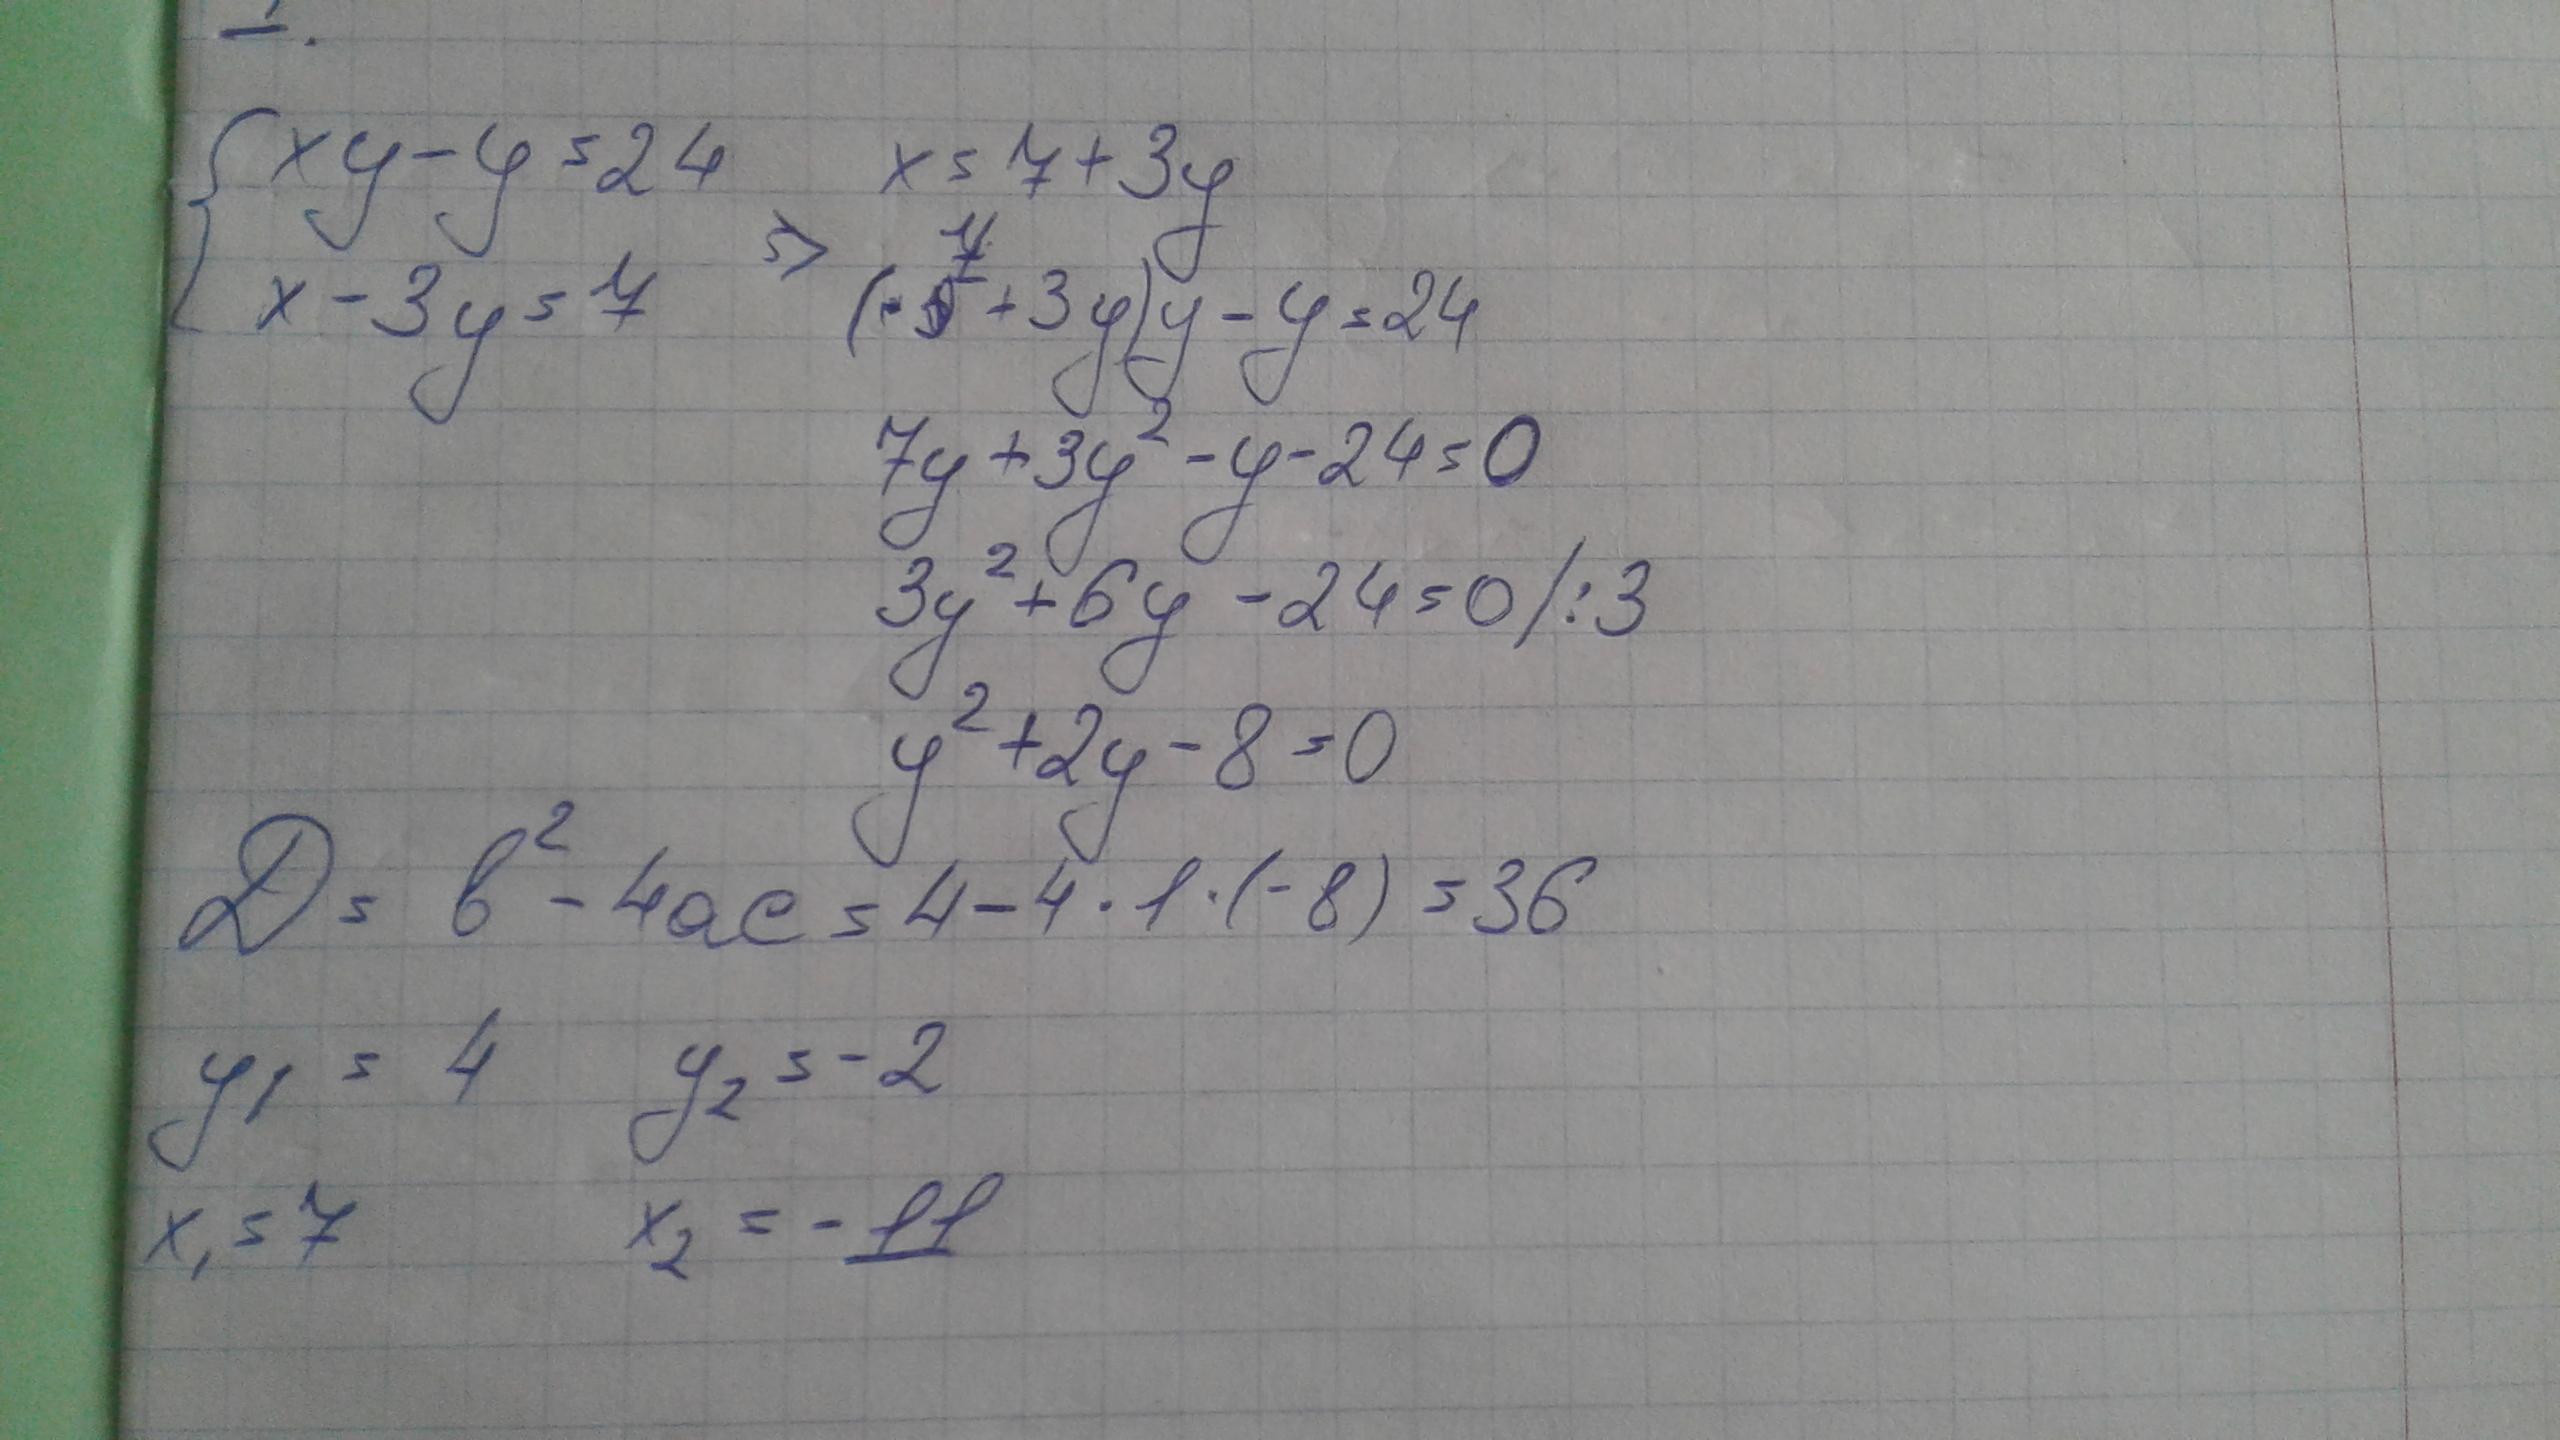 { xy - y = 24
x - 3y = 7
=> x = 7 + 3y
7
( + 3y)y - y = 24
7y + 3y² - y - 24 = 0
3y² + 6y - 24 = 0 /:3
y² + 2y - 8 = 0
D = b² - 4ac = 4 - 4 · 1 · (-8) = 36
y₁ = 4 y₂ = -2
x₁ = 7 x₂ = -11